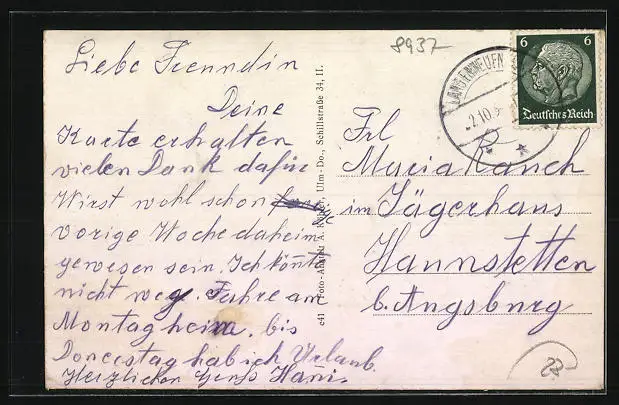 8937
Liebe Freundin
Deine
Karte erhalten
vielen Dank dafür
Wirst wohl schon
vorige Woche daheim
gewesen sein. Ich könnte
nicht weg. Fahre am
Montag heim, bis
Donerstag hab ich Urlaub.
Herzlichen Gruß Hani.
c41 Foto-Anstalt A. Ulm-Do., Schillstraße 34, II.
LANGERNEUFN
2.10.3
6 6
Deutsches Reich
Frl
Maria Rauch
im Jägerhaus
Haunstetten
b. Augsburg